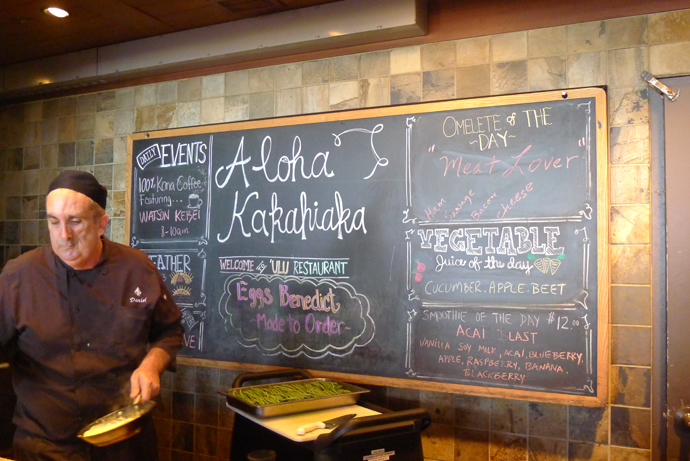 DAILY EVENTS
100% Kona Coffee
Featuring...
WATSON KEBEI
8-10am
Aloha
Kakahiaka
WELCOME TO 'ULU RESTAURANT
Eggs Benedict
-Made to Order-
OMELETE of THE
-DAY-
"Meat Lover"
Ham
Sausage
Bacon
cheese
VEGETABLE
Juice of the day
CUCUMBER.APPLE.BEET
SMOOTHIE OF THE DAY $12.00
ACAI BLAST
VANILLA SOY MILK, ACAI, BLUEBERRY,
APPLE, RASPBERRY, BANANA,
BLACKBERRY
Daniel